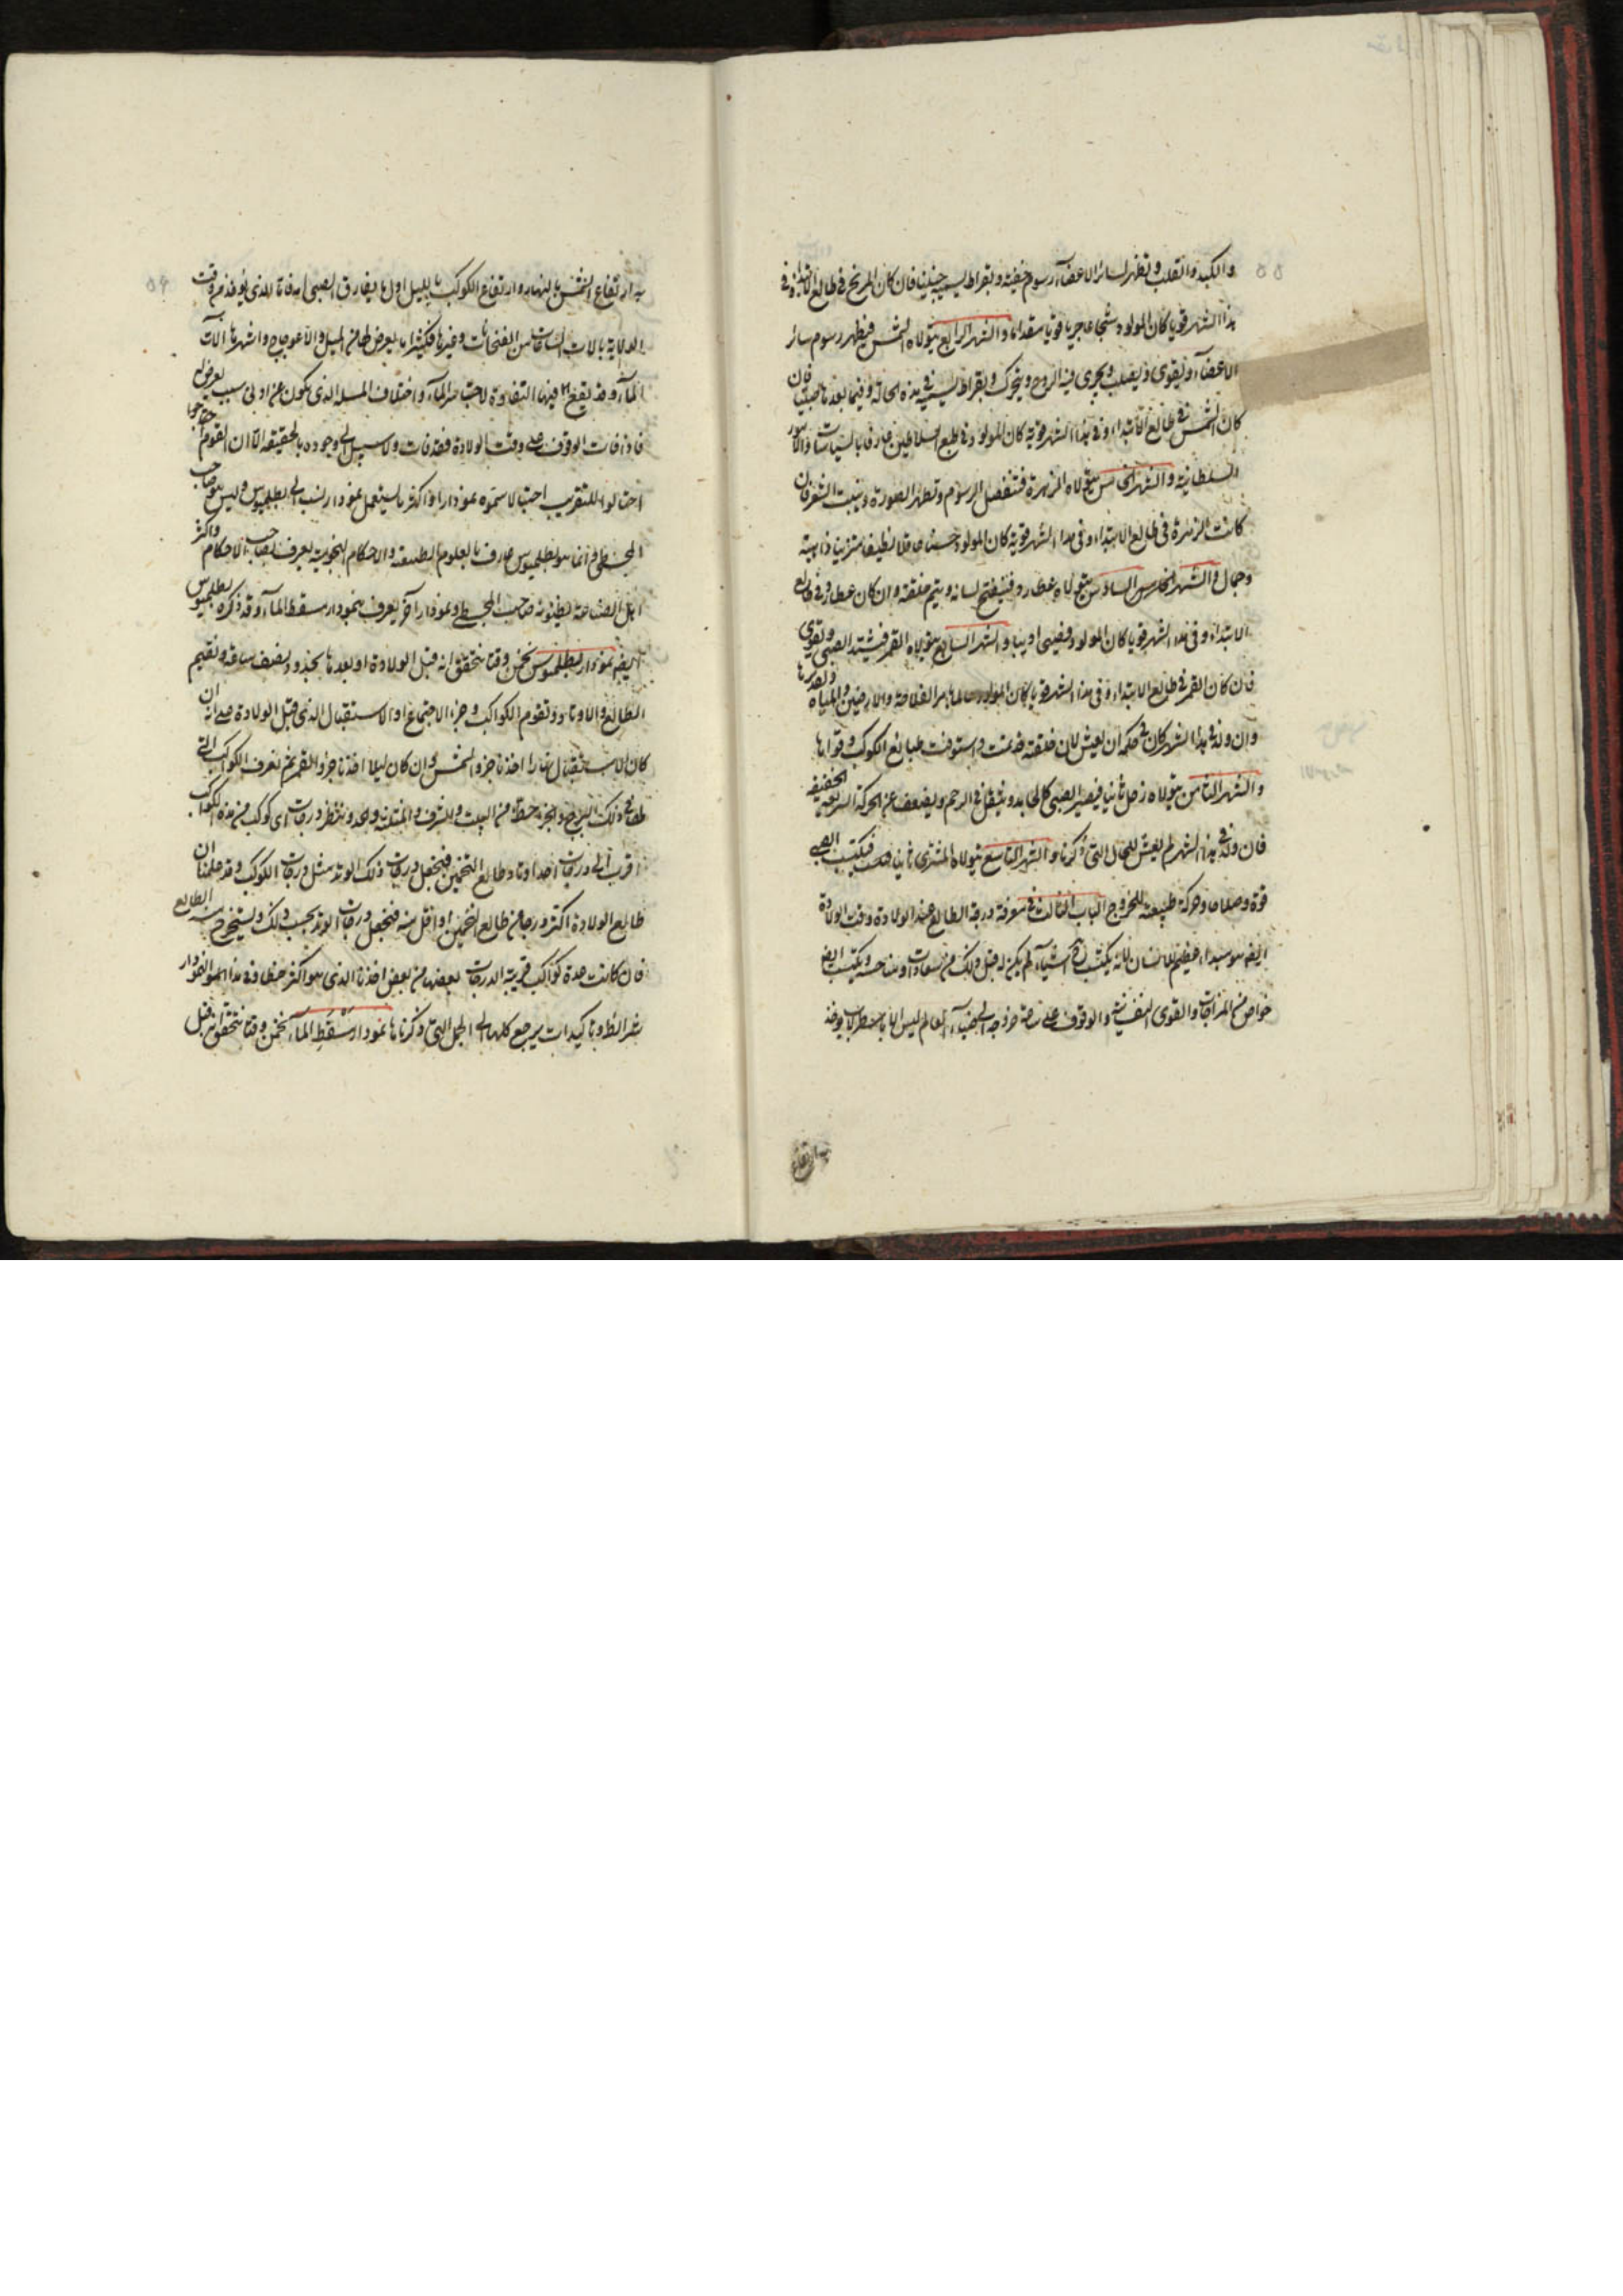 والكبد والقلب وتظهر لسائر الاعضآء رسوم خفية وبقراط يسميه جنينا فان كان المريخ في طالع الابتداء وفي
هذا الشهر قويا كان المولود شجاعا جريا قويا مقداما والشهر الرابع يتولاه الشمس فيظهر رسوم سائر
الاعضآء ويقوى ويصلب ويجرى فيه الروح ويتحرك وبقراط يسميه في هذه الحالة وفيما بعدها صبيا فان
كان الشمس في طالع الابتداء وفي هذا الشهر قوية كان المولود في طبع السلاطين عارفا بالسياسات والامور
السلطانية والشهر الخامس يتولاه الزهرة فتنفصل الرسوم وتظهر الصورة وينبت الشعر فان
كانت الزهرة في طالع الابتداء وفي هذا الشهر قوية كان المولود حسنا عاقلا نظيفا متزينا ذا هيئة
وجمال والشهر الخامس السادس يتولاه عطارد فينفتح لسانه ويتم خلقته وان كان عطارد في طالع
الابتداء وفي هذا الشهر قويا كان المولود فصيحا اديبا والشهر السابع يتولاه القمر فيشتد الصبى ويقوى
فان كان القمر في طالع الابتداء وفي هذا الشهر قويا كان المولود عالما بامر الفلاحة والارضين والمياه وتقديرها
وان ولد في هذا الشهر كان في حكمه ان يعيش لان خلقته قد تمت واستوفت طبائع الكوكب وقواها
والشهر الثامن يتولاه زحل ثانيا فيصير الصبى كالخامد ويثقل في الرحم ويضعف عن الحركة السريعة الخفيفة
فان ولد في هذا الشهر لم يعش للحال التي ذكرنا والشهر التاسع يتولاه المشترى ثانيا فيكتسب الصبى
قوة وصلاحا وحركة طبيعته للخروج الباب الثالث في معرفة درجة الطالع عند الولادة وقت الولادة
ايضا هو مبداء عظيم للانسان لانه يكتسب فيه اشيآء لم يكن له قبل ذلك من سعادات ومناحس ويكتسب ايضا
خواص من المزاجات والقوى النفسانية والوقوف على ساعة خروجه الى ضيآء العالم ليس الا باسطرلاب يوخذ
به ارتفاع
به ارتفاع الشمس بالنهار وارتفاع الكوكب بالليل اول ما يفارق الصبى امه فاما الذى يوخذ من وقت
الولادة بالات الساعات من الفنجانات وغيرها فكثيرا ما يعرض لها من الميل والاعوجاج واشهرها الات
المآء وقد يقع فيها التفاوت لاحتباس المآء واختلاف المسلة الذى يكون عن ادنى سبب يعرض له
فاذا فات الوقوف على وقت الولادة فقد فات ولا سبيل الى وجوده بالحقيقة الا ان القوم
احتالوا للتقريب احتيالا سموه نموذارا واكثر ما يستعمل نموذار ينسب الى بطلميوس وليس هو صاحب
المجسطى وانما هو بطلميوس عارف بالعلوم الطبيعية والاحكام النجومية يعرف بصاحب الاحكام واكثر
اهل الصناعة يظنونه صاحب المجسطى ونموذار آخر يعرف بنموذار مسقط المآء وقد ذكره بطلميوس
ايضا نموذار بطلميوس نخمن وقتا نتحقق انه قبل الولادة او بعدها بحدود نصف ساعة ونقيم
الطالع والاوتاد ونقوم الكواكب وجزء الاجتماع او الاستقبال الذى قبل الولادة على انه ان
كان الاستقبال نهارا اخذنا جزو الشمس وان كان ليلا اخذنا جزو القمر ثم نعرف الكواكب التي
لها في ذلك البرج والجزء حظا من البيت والشرف والمثلثة والحد وننظر درجات اى كوكب من هذه الكواكب
اقرب الى درجات احد اوتاد طالع التخمين فنجعل درجات ذلك الوتد مثل درجات الكوكب وقد علمنا ان
طالع الولادة اكثر درجا من طالع التخمين او اقل منه فنجعل درجات الوتد بحسب ذلك ونستخرج منه الطالع
فان كانت عدة كواكب قريبة الدرجات بعضها من بعض اخذنا الذى هو اكثر حظا وفي هذا النموذار
شرائط وتاكيدات يرجع كلها الى الجمل التي ذكرناها نموذار مسقط المآء نخمن وقتا نتحقق انه قبل